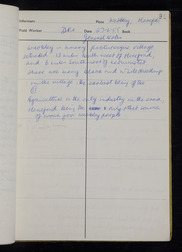 Informant Place Weobley, Hereford
Field Worker DRS Date Book
General Notes
Weobley is a very picturesque village
situated 12 miles north-west of Hereford,
and 8 miles south-west of Leominster
There are many black and white buildings
in the village, the oldest being of the
Agriculture is the only industry in the area,
Hereford being the only other source
of work for Weobley people